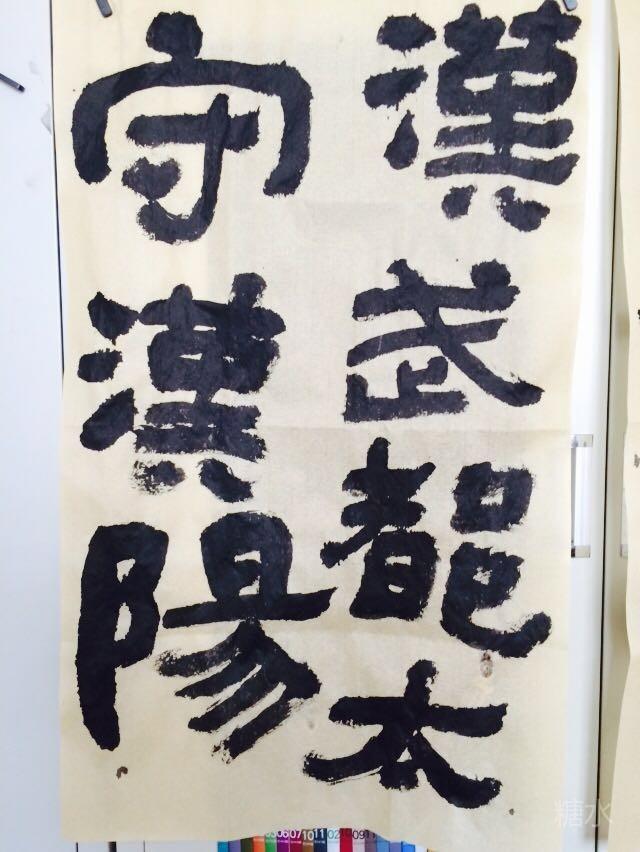 漢武都本
守漢陽
03060710110209
糖水